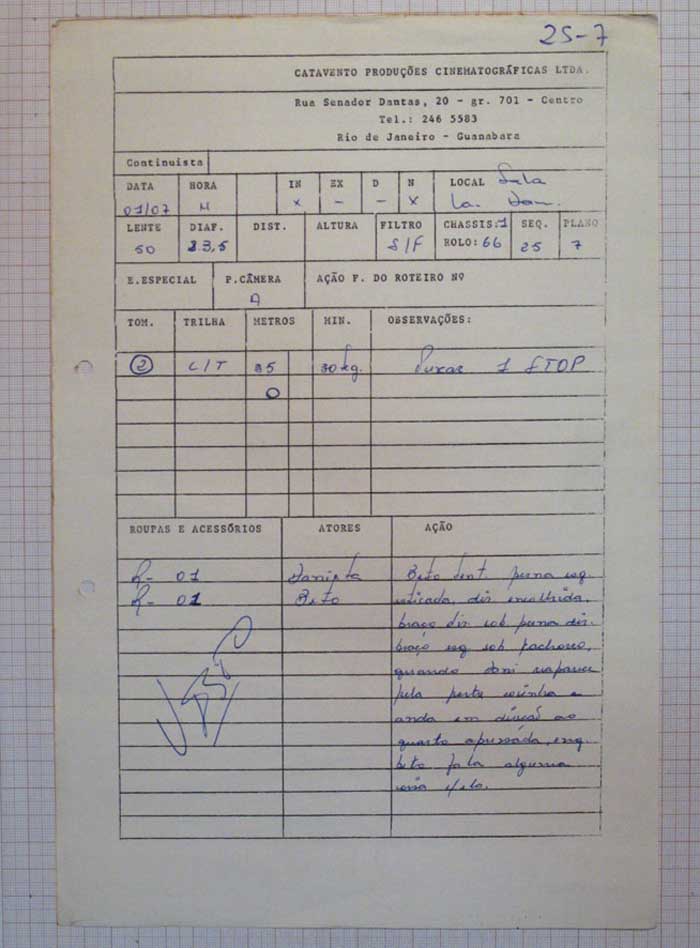 25-7
CATAVENTO PRODUÇÕES CINEMATOGRÁFICAS LTDA.
Rua Senador Dantas, 20 - gr. 701 - Centro
Tel.: 246 5583
Rio de Janeiro - Guanabara
Continuista
DATA HORA IN EX D N LOCAL Sala
01/07 N x - - x
LENTE DIAF. DIST. ALTURA FILTRO CHASSIS:1 SEQ. PLANO
50 S/F ROLO:66 25 7
E.ESPECIAL P.CÂMERA AÇÃO F. DO ROTEIRO Nº
A
TOM. TRILHA METROS MIN. OBSERVAÇÕES:
2 C/T 35 Puxar 1 STOP
O
ROUPAS E ACESSÓRIOS ATORES AÇÃO
R- 01 Beto sent. perna esq.
R- 01 Beto esticada, dir. encolhida,
braço dir. sob perna dir.
braço esq sob
quando reaparece
pela porta cozinha e
anda em direção ao
quarto apressada, enq.
beto fala alguma
coisa